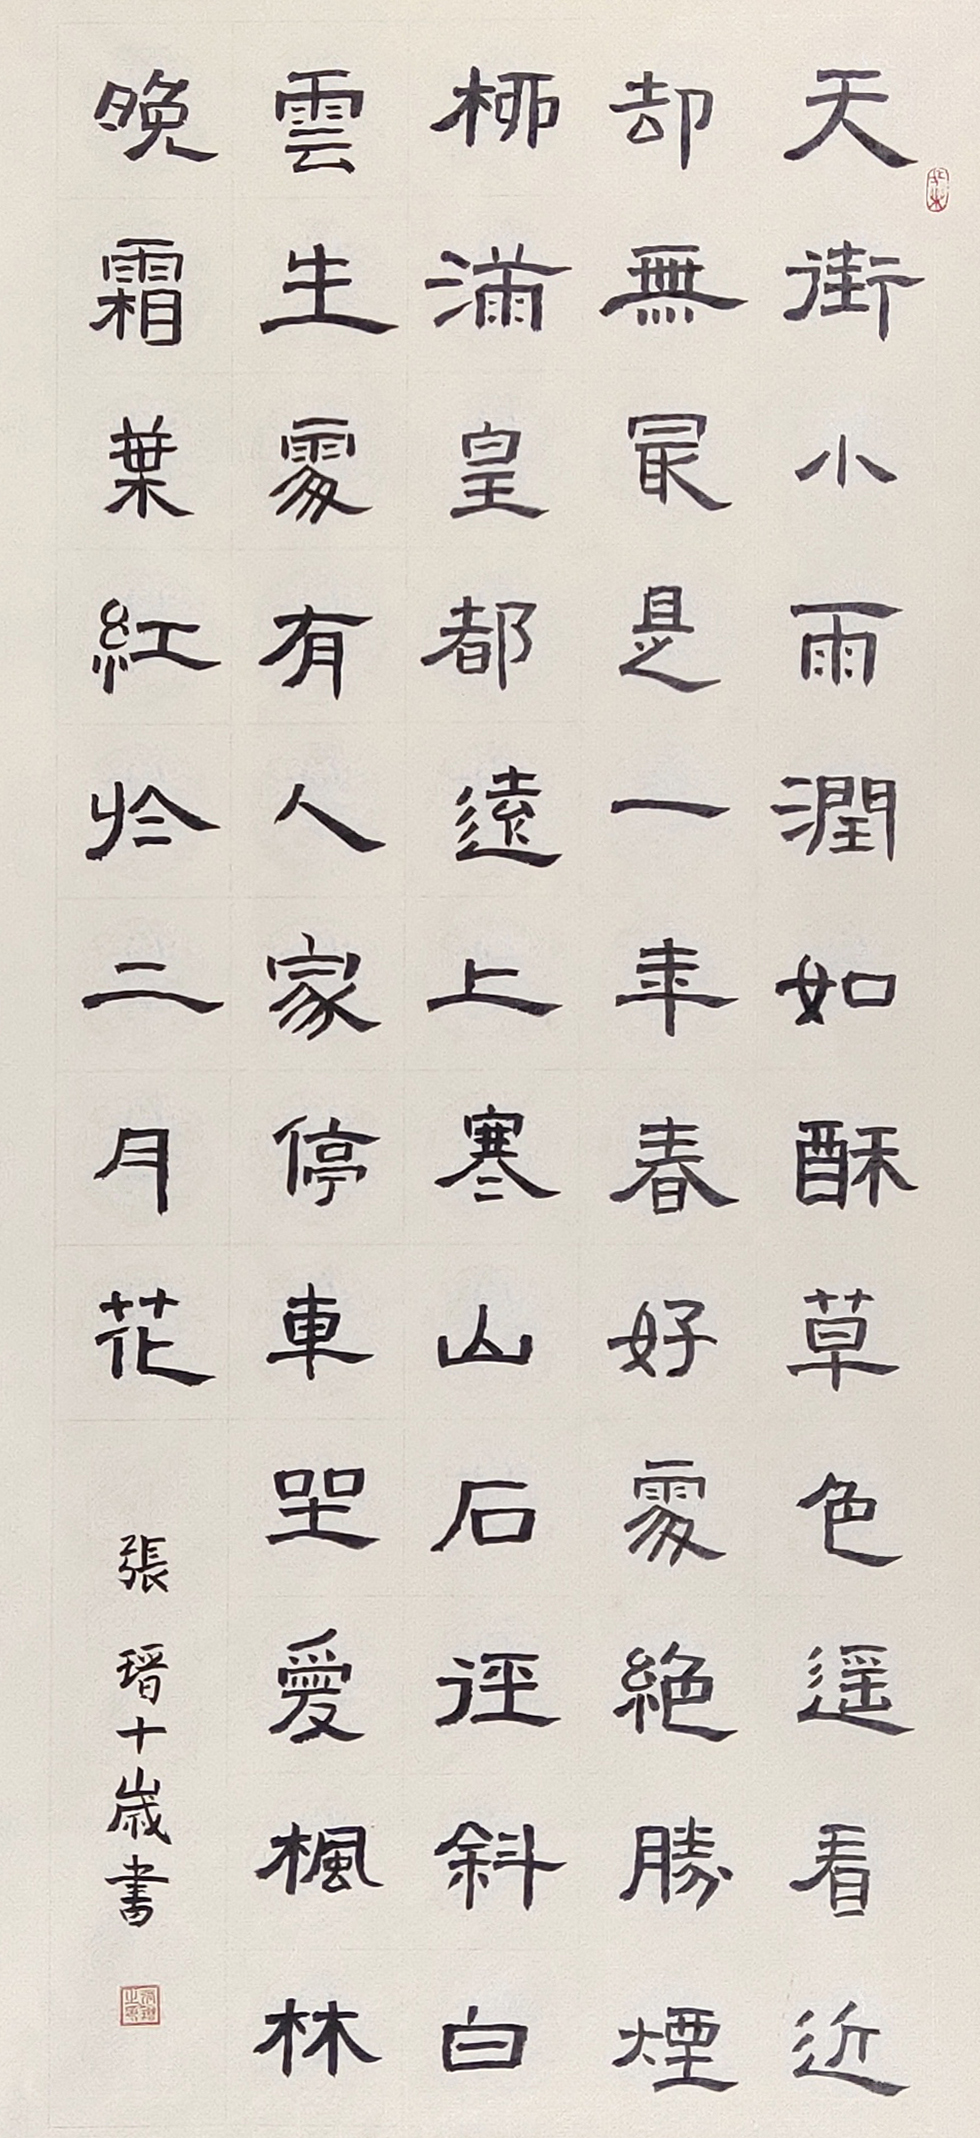 天街小雨潤如酥草色遥看近
却無最是一年春好處絶勝煙
柳滿皇都遠上寒山石徑斜白
雲生處有人家停車坐愛楓林
晚霜葉紅於二月花
張瑨十歲書